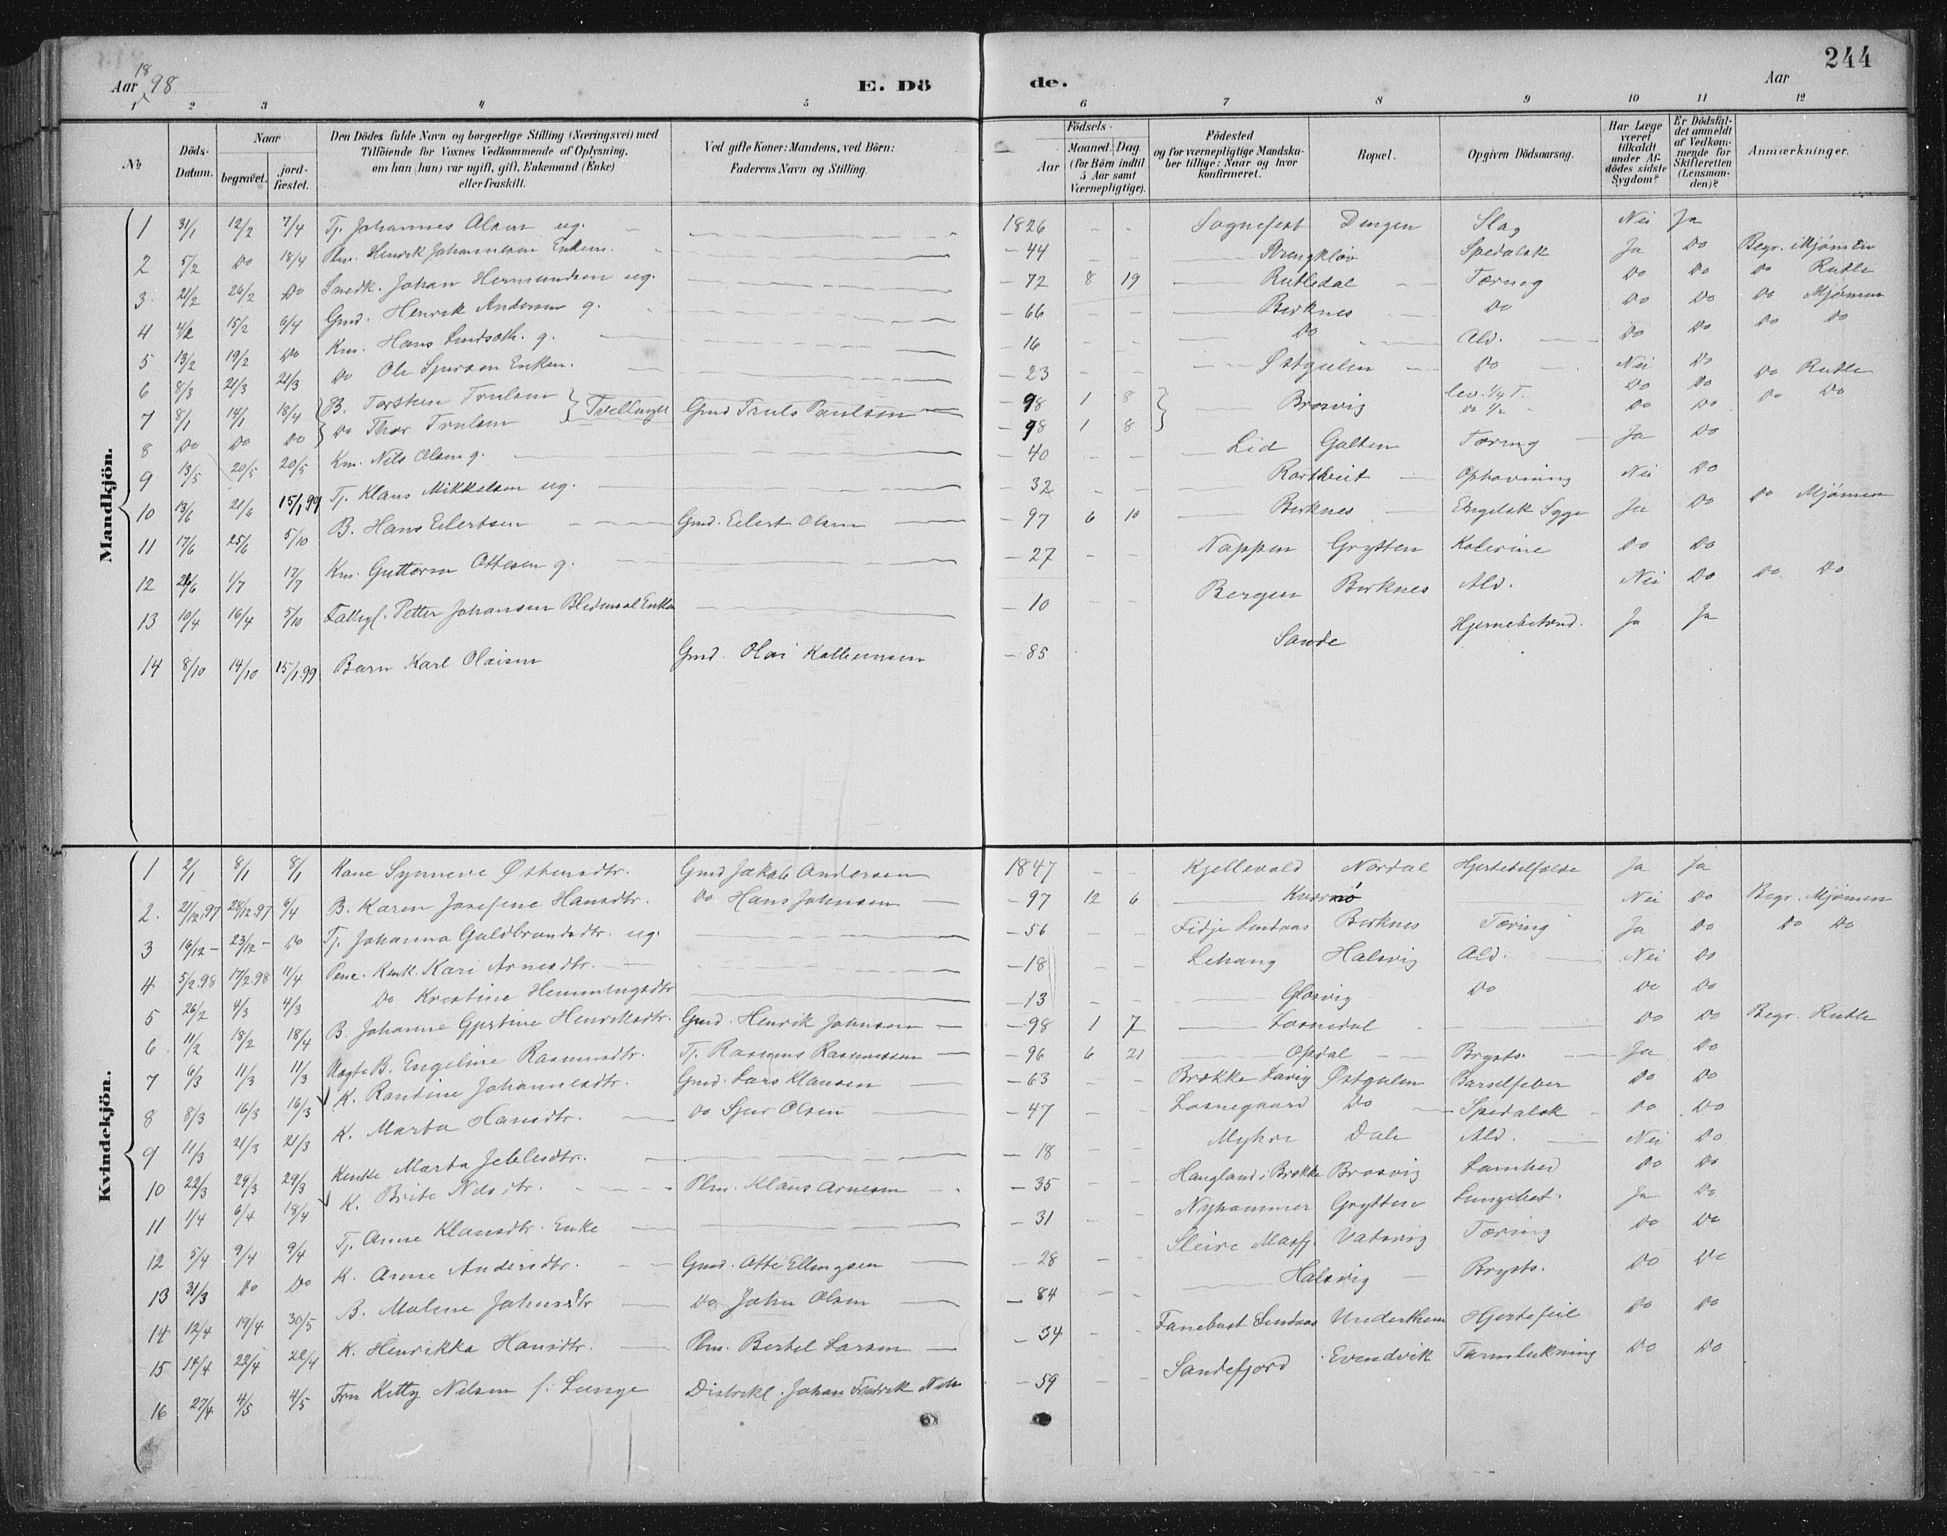 Aar 1898
E. Döde.
Aar
244
1 2 3 4 5 6 7 8 9 10 11 12
No
Döds-Datum.
Naar
begravet.
jord-fæstet.
Den Dödes fulde Navn og borgerlige Stilling (Næringsvei) med Tilföiende for Voxnes Vedkommende af Oplysning, om han (hun) var ugift, gift, Enkemand (Enke) eller fraskilt.
Ved gifte Koner: Mandens, ved Börn: Faderens Navn og Stilling.
Födsels-
Aar
Maaned. Dag
(for Börn indtil 5 Aar samt Værnepligtige).
Födested og for værnepligtige Mandskaber tillige: Naar og hvor konfirmeret.
Bopæl.
Opgiven Dödsaarsag.
Har Læge været tilkaldt under Afdödes sidste Sygdom?
Er Dödsfaldet anmeldt af Vedkommende for Skifteretten (Lensmanden)?
Anmærkninger.
Mandkjön.
1 31/1 12/2 7/4 Tj. Johannes Olsen ug. 1826 Sognefest Dingen Slag Nei Ja
2 5/2 Do 18/4 Henrik Johannesen Enkem. -44 Spedalsk Ja Do Begr. i Mjömen
3 21/2 26/2 Do Johan Hermundsen ug. -72 8 19 Rutledal Tæring Do Do Do Rutle
4 4/2 15/2 6/4 Gmd. Henrik Andersen g. -66 Birknes Do Do Do Do Mjömen
5 13/2 19/2 Do Km. Hans g. -16 Do Ald. Do Do Do Do
6 8/3 21/3 21/3 Do Ole Sjursen Enkem. -23 Østgulen Do Nei Do
7 8/1 14/1 18/4 B. Torsten Trulsen } Tvillinger Gmd Truls Paulsen -98 1 8 Brosvig lev. 1/4 T. Do Do Do Rutle
8 Do Do Do Do Thor Trulsen -98 1 8 Do 1/2 Do Do Do Do
9 13/5 20/5 20/5 Km. Nils Olsen g. -40 Lid Galten Tæring Ja Do
10 13/6 21/6 15/1 99 Tj. Klaus Mikkelsen ug. -32 Ophovning Nei Do
11 17/6 25/6 5/10 B. Hans Eilertsen Gmd. Eilert Olsen -97 6 10 Birknes Engelsk Syge Ja Do Do Mjömen
12 26/6 1/7 17/7 Km. Guttorm Ottesen g. -27 Nappen Grytten Do Do
13 10/4 16/4 5/10 Petter Johansen -10 Bergen Birknes Ald. Nei Do Do Do
14 8/10 14/10 15/1 99 Barn Karl Olaisen Gmd. Olai -85 Sande Hjernebetænd. Ja Ja
Kvindekjön.
1 2/1 8/1 8/1 Kone Synneve Østensdtr. Gmd Jakob Andersen 1847 Kjellevold Nordal Ja Ja
2. 21/12 97 28/12 97 6/4 B. Karen Josefine Hansdtr. Do Hans Johnsen -97 12 6 Nei Do Begr. Mjömen
3 16/12 - 23/12 - Do Tj. Johanna Guldbrandsdtr. ug. -56 Birknes Tæring Ja Do Do Do
4 5/2 98 17/2 98 11/4 Kari Arnesdtr. -18 Halsvig Ald. Nei Do
5 26/2 4/3 4/3 Do Kristine Hemmingsdtr -13 Glosvig Do Do Do
6 11/2 18/2 18/4 B Johanne Gjertine Henriksdtr. Gmd. Henrik Johnsen -98 1 7 Losnedal Do Do Begr. Rutle
7 6/3 11/3 11/3 B. Engeline Rasmusdtr. Tj. Rasmus Rasmussen -96 6 21 Opdal Brysts. Ja Do
8 8/3 16/3 16/3 K. Randine Johannesdtr. Gmd. Lars Klausen -63 Brække Østgulen Barselfeber Do Do
9 11/3 21/3 21/3 K. Marta Hansdtr. Do Sjur Olsen -47 Losnegaard Do Spedalsk Do Do
10 22/3 29/3 29/3 Marta -18 Myhre Dale Ald. Nei Do
11 1/4 6/4 18/4 K. Brite Nilsdtr. Plm. Klaus Arnesen -35 Haugland i Brække Brosvig Lamhed Do Do
12 5/4 9/4 9/4 Tj. Anne Klausdtr. Enke -31 Nyhammer Grytten Lungebet. Ja Do
13 31/3 Do Do K. Anne Andersdtr. Gmd. Otte Ellingsen -28 Sleire Masfj. Vatsvig Tæring Do Do
14 12/4 19/4 30/5 B. Malene Johnsdtr Do John Olsen -84 Halsvig Brysts. Do Do
15 14/4 22/4 22/4 K. Henrikka Hansdtr. Plm. Bertel Larsen -34 Fanebust Lindaas Hjertefeil Do Do
16 27/4 4/5 4/5 Fru Kitty Nilsen f. Lange Johan Fredrik -59 Sandefjord Evindvik Do Do